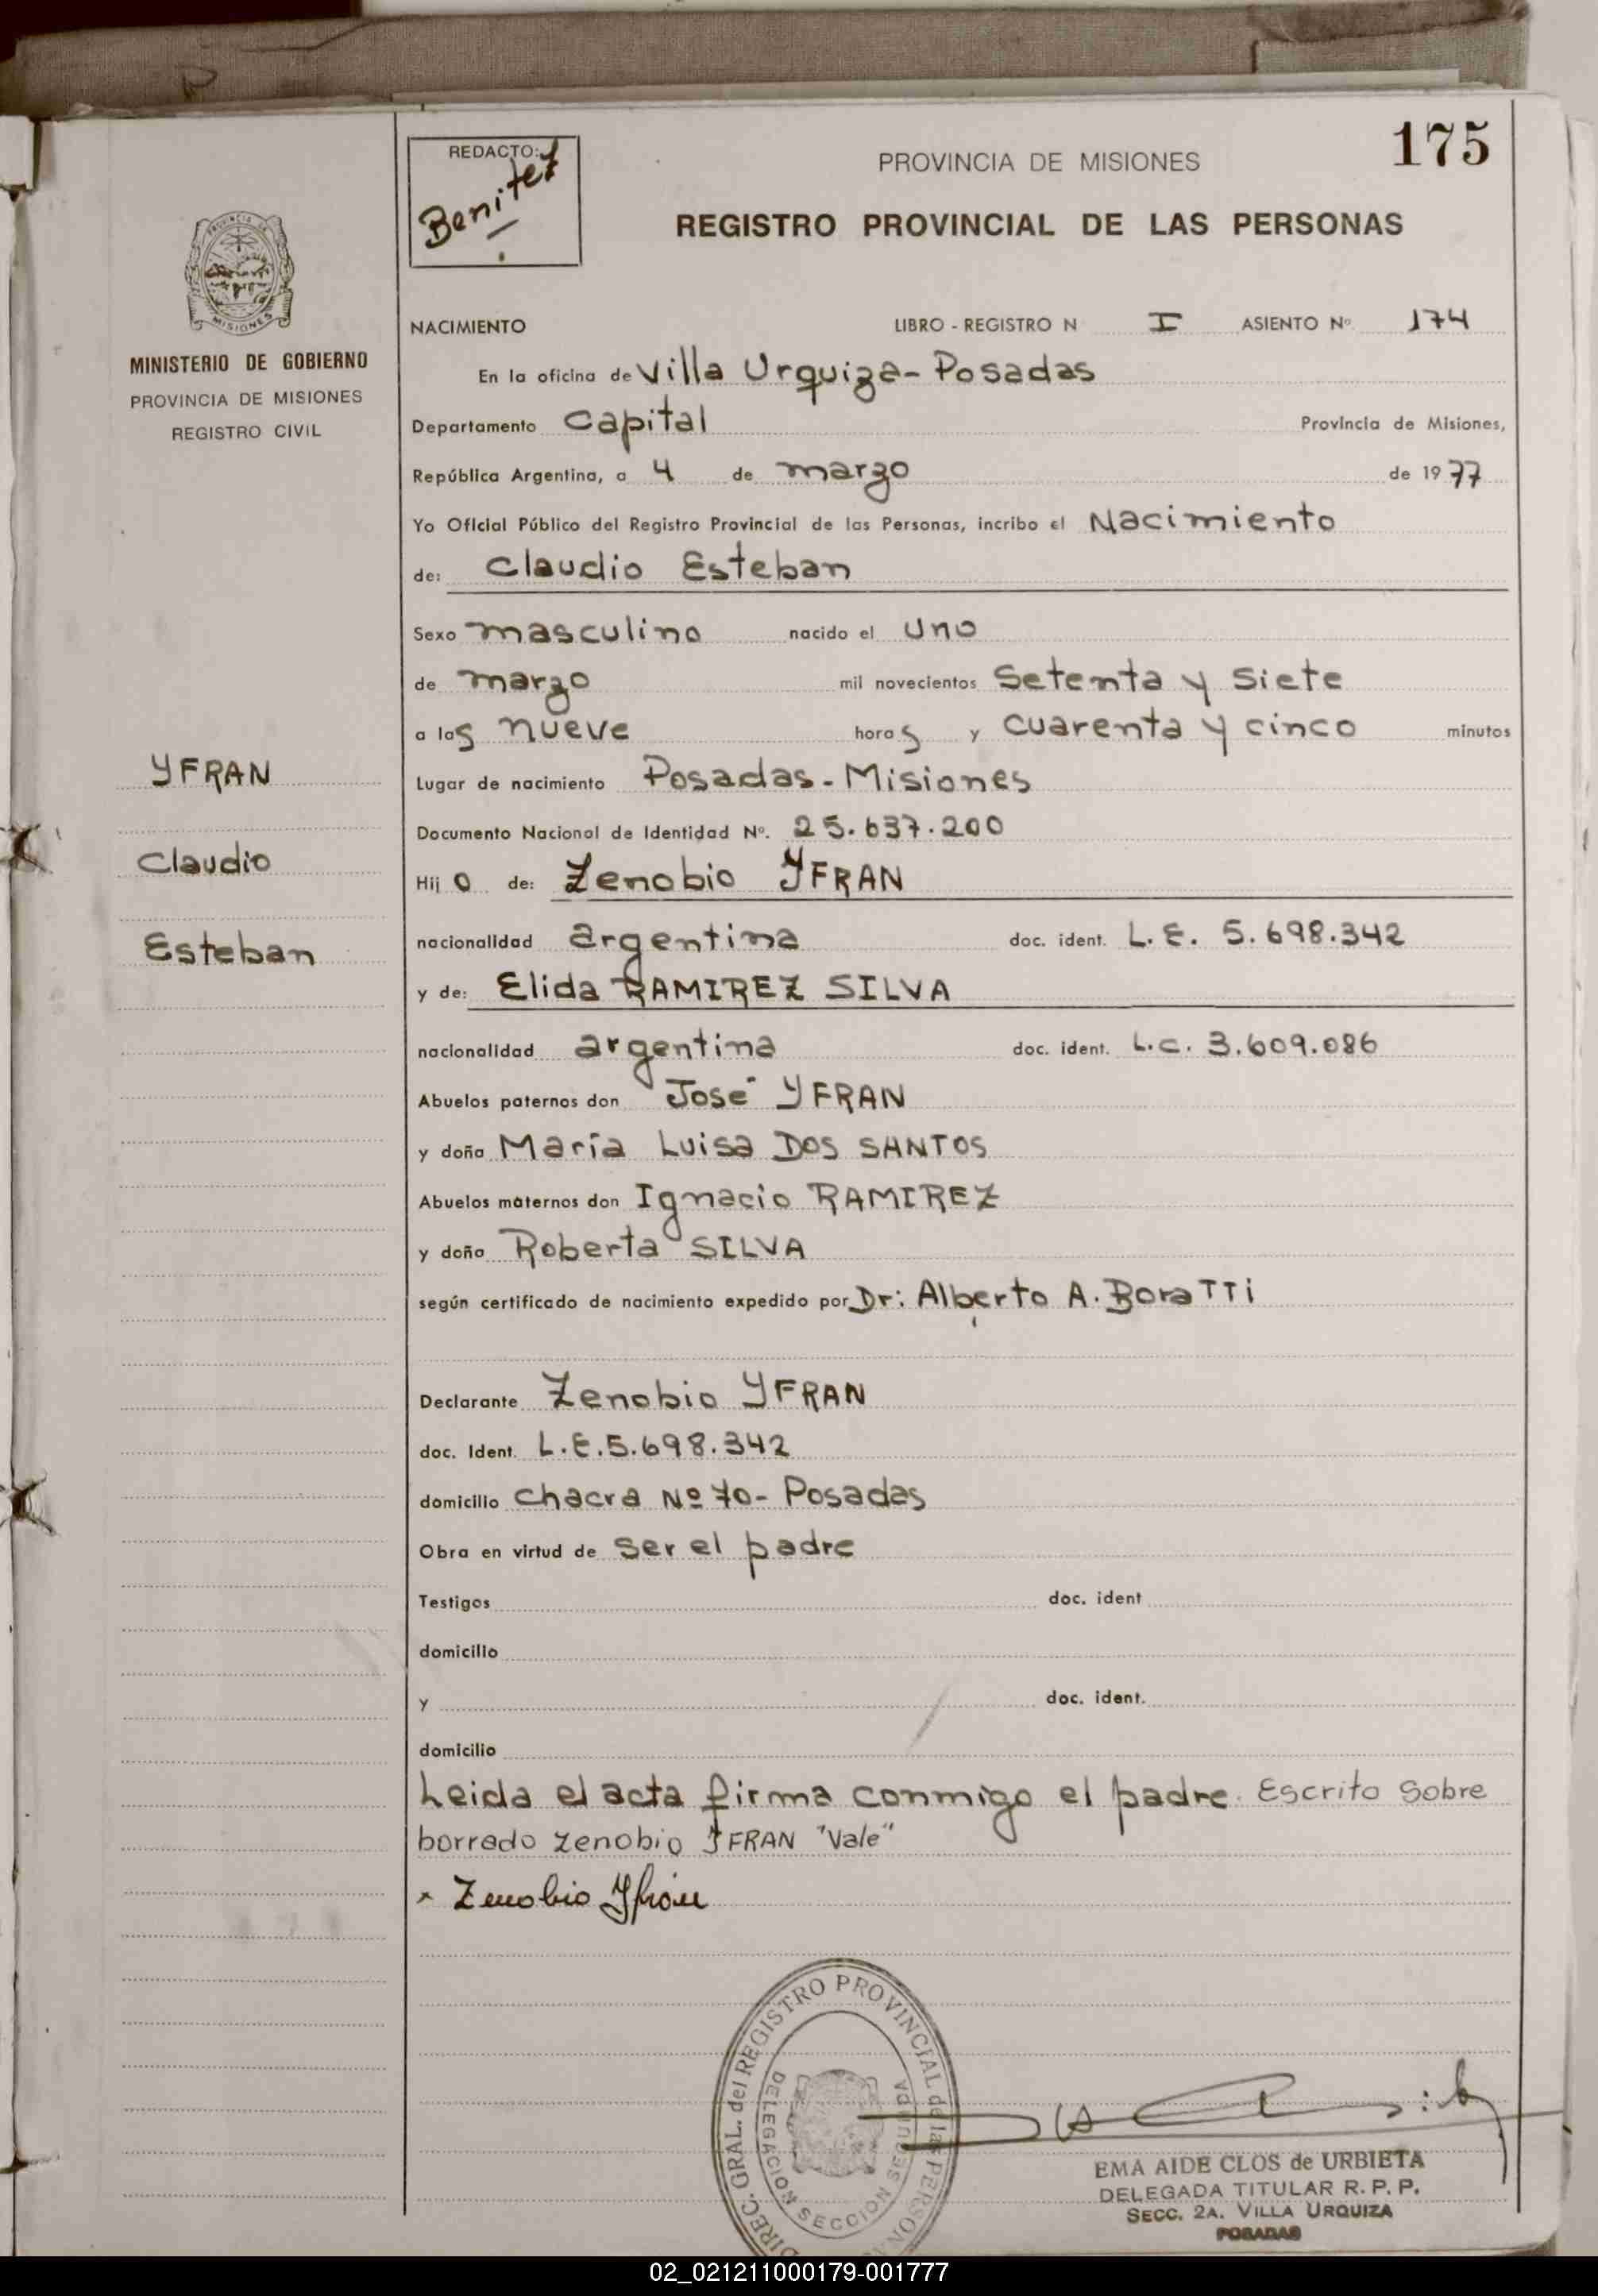 175
REDACTO:
Benitez
PROVINCIA DE MISIONES
REGISTRO PROVINCIAL DE LAS PERSONAS
PROVINCIA DE
MISIONES
MINISTERIO DE GOBIERNO
PROVINCIA DE MISIONES
REGISTRO CIVIL
YFRAN
Claudio
Esteban
NACIMIENTO LIBRO - REGISTRO N I ASIENTO Nº 174
En la oficina de Villa Urquiza - Posadas
Departamento Capital Provincia de Misiones,
República Argentina, a 4 de marzo de 1977
Yo Oficial Público del Registro Provincial de las Personas, incribo el Nacimiento
de: Claudio Esteban
Sexo masculino nacido el uno
de marzo mil novecientos setenta y siete
a las nueve horas y cuarenta y cinco minutos
Lugar de nacimiento Posadas - Misiones
Documento Nacional de Identidad Nº. 25.637.200
Hijo de: Zenobio YFRAN
nacionalidad argentina doc. ident. L.E. 5.698.342
y de: Elida RAMIREZ SILVA
nacionalidad argentina doc. ident. L.C. 3.609.086
Abuelos paternos don José YFRAN
y doña María Luisa DOS SANTOS
Abuelos maternos don Ignacio RAMIREZ
y doña Roberta SILVA
según certificado de nacimiento expedido por Dr: Alberto A. BoraTTi
Declarante Zenobio YFRAN
doc. Ident. L.E. 5.698.342
domicilio Chacra Nº 70 - Posadas
Obra en virtud de ser el padre
Testigos doc. ident
domicilio
y doc. ident.
domicilio
Leida el acta firma conmigo el padre. Escrito sobre
borrado Zenobio YFRAN "Vale"
x Zenobio Yfrán
DIREC. GRAL. del REGISTRO PROVINCIAL de las PERSONAS
DELEGACION SECCION SEGUNDA
EMA AIDE CLOS de URBIETA
DELEGADA TITULAR R. P. P.
SECC. 2A. VILLA URQUIZA
POSADAS
02_021211000179-001777